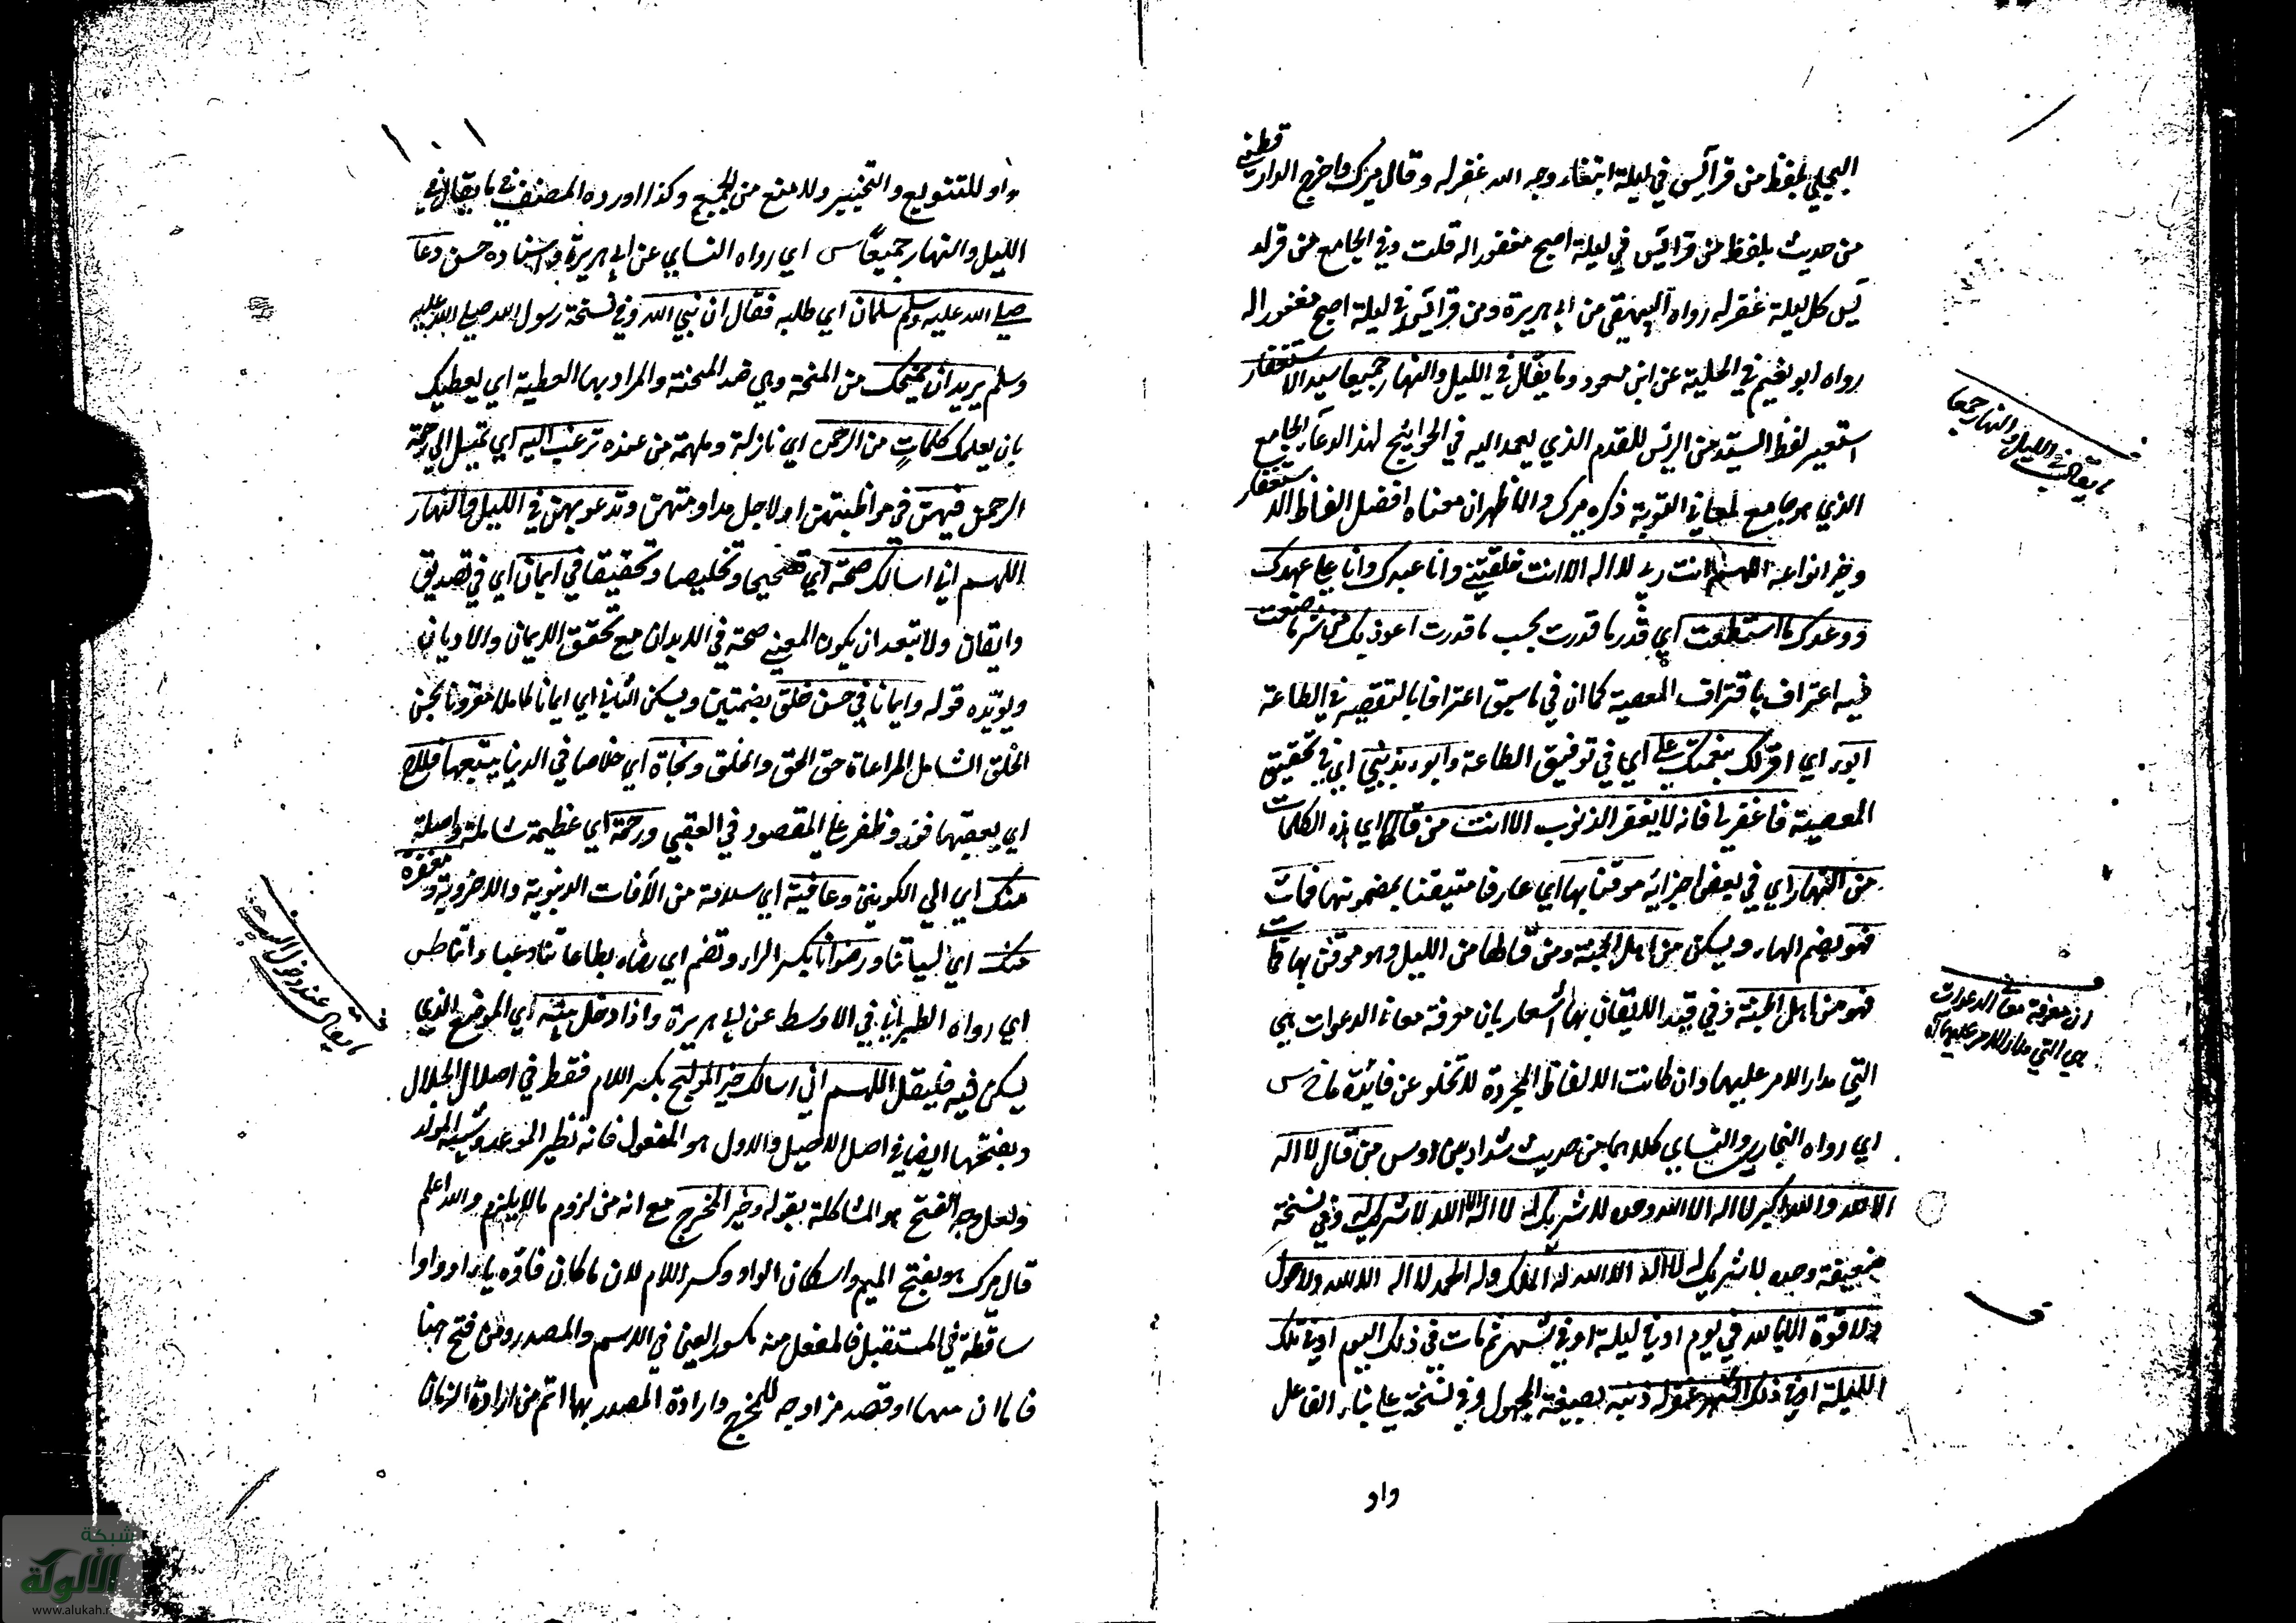 البجلي بلفظ من قرأ يس في ليلة ابتغاء وجه الله غفر له وقال ميرك واخرج الدار قطني
من حديث بلفظ من قرا يس في ليلة اصبح مغفورا له قلت وفي الجامع من قرا
يس كل ليلة غفر له رواه البيهقي من ابي هريرة ومن قرا يس في ليلة اصبح مغفورا له
رواه ابو نعيم في الحلية عن ابن مسعود وما يقال في الليل والنهار جميعا سيد الاستغفار
استعير لفظ السيد من الرئيس المقدم الذي يعمد اليه في الحوايج لهذا الدعاء الجامع
الذي هو جامع لمعاني التوبة ذكره ميرك والاظهر ان معناه افضل الفاظ الاستغفار
وخير انواعه اللهم انت ربي لا اله الا انت خلقتني وانا عبدك وانا على عهدك
ووعدك ما استطعت اي قدر ما قدرت بحسب ما قدرت اعوذ بك من شر ما صنعت
فيه اعتراف باقتراف المعصية كما ان في ما سبق اعترافا بالتقصير في الطاعة
ابوء اي اقر لك بنعمتك علي اي في توفيق الطاعة وابوء بذنبي اي في تحقيق
المعصية فاغفر لي فانه لا يغفر الذنوب الا انت من قالها اي هذه الكلمات
من النهار اي في بعض اجزائه موقنا بها اي عارفا متيقنا بمضمونها فمات
فهو بضم الهاء ويسكن من اهل الجنة ومن قالها من الليل وهو موقن بها فمات
فهو من اهل الجنة وفي قيد الايقان بها اشعار بان معرفة معاني الدعوات هي
التي مدار الامر عليها وان كانت الالفاظ المجردة لا تخلو عن فائدة ما خ س
اي رواه البخاري والنسايي كلاهما من حديث شداد بن اوس من قال لا اله
الا الله والله اكبر لا اله الا الله وحده لا شريك له لا اله الا الله لا شريك له وفي نسخة
ضعيفة وحده لا شريك له لا اله الا الله له الملك وله الحمد لا اله الا الله ولا حول
ولا قوة الا بالله في يوم او في ليلة او في شهر ثم مات في ذلك اليوم او في تلك
الليلة او في ذلك الشهر غفر له ذنبه بصيغة المجهول وفي نسخة على بناء الفاعل
واو
ما يقال في الليل والنهار جميعا
ان معرفة معاني الدعوات
هي التي مدار الامر عليها
واو للتنويع والتخيير ولا منع من الجمع وكذا اورده المصنف في ما يقال في
الليل والنهار جميعا س اي رواه النسايي عن ابي هريرة واسناده حسن دعا
صلى الله عليه وسلم سلمان اي طلبه فقال ان نبي الله وفي نسخة رسول الله صلى الله عليه
وسلم يريد ان يمنحك من المنحة وهي ضد المحنة والمراد بها العطية اي يعطيك
بان يعلمك كلمات من الرحمن اي نازلة وملهمة من عنده ترغب اليه اي تميل الى رحمة
الرحمن فيهن في مواظبتهن او لاجل مداومتهن وتدعو بهن في الليل والنهار
اللهم اني اسالك صحة اي تصحيحا وتخليصا وتحقيقا في ايمان اي في تصديق
وايقان ولا يبعد ان يكون المعنى صحة في الابدان مع تحقق الايمان والاديان
ويؤيده قوله وايمانا في حسن خلق بضمتين ويسكن الثاني اي ايمانا كاملا مقرونا بحسن
الخلق الشامل لمراعاة حق الحق والخلق ونجاة اي خلاصا في الدنيا يتبعها فلاح
اي يعقبها فوز وظفر على المقصود في العقبى ورحمة اي عظيمة شاملة واصلة
منك اي الى الكونين وعافية اي سلامة من الآفات الدنيوية والاخروية ومغفرة
منك اي لسيأتنا ورضوانا بكسر الراء وتضم اي رضاء بطاعاتنا وعباداتنا طس
اي رواه الطبراني في الاوسط عن ابي هريرة واذا دخل بيته اي الموضع الذي
يسكن فيه فليقل اللهم اني اسالك خير المولج بكسر اللام فقط في اصل الجلال
وبفتحها ايضا في اصل الاصيل والاول هو المعول فانه نظير الموعد وشبيه المولد
ولعل وجه الفتح هو المشاكلة بقوله وخير المخرج مع انه من لزوم ما لا يلزم والله اعلم
قال ميرك هو بفتح الميم واسكان الواو وكسر اللام لان ما كان فاؤه ياء او واوا
ساقطة في المستقبل فالمفعل منه مكسور العين في الاسم والمصدر ومن فتح هنا
فاما ان سها او قصد مزاوجه للمخرج وارادة المصدر بهما اتم من ارادة الزمان
ما يقال عند دخول البيت
شبكة
الألوكة
www.alukah.